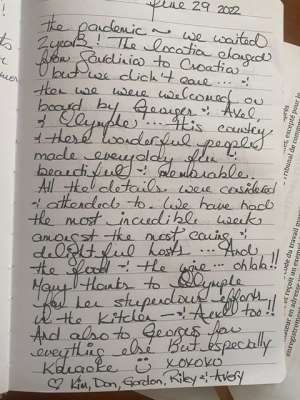 June 29, 2022
the pandemic ~ we waited
2 years! The location changed
from Sardinia to Croatia
but we didn't care ... :
then we were welcomed on
board by Georges : Axel,
: Olymple .... This country
: these wonderful people
made everyday fun :
beautiful : memorable.
All the details were considered
: attended to. We have had
the most incredible week
amongst the most caring :
delightful hosts ... And
the food : the wine ... ohlala!!
Many thanks to Olymple
for her stupendous efforts
in the kitchen — : Axel too!!
And also to Georges for
everything else But especially
Karaoke ☺ xoxoxo
♡ Kim, Don, Gordon, Riley : Avery
excepté pour le
Tribunal de com
ode du travail
et reçoit un exem
ateur en adresse
entreprenement